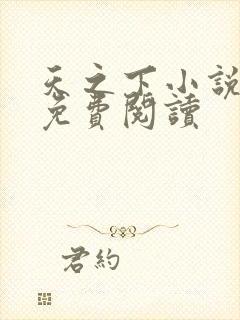 天之下小説
免費閱讀
君約